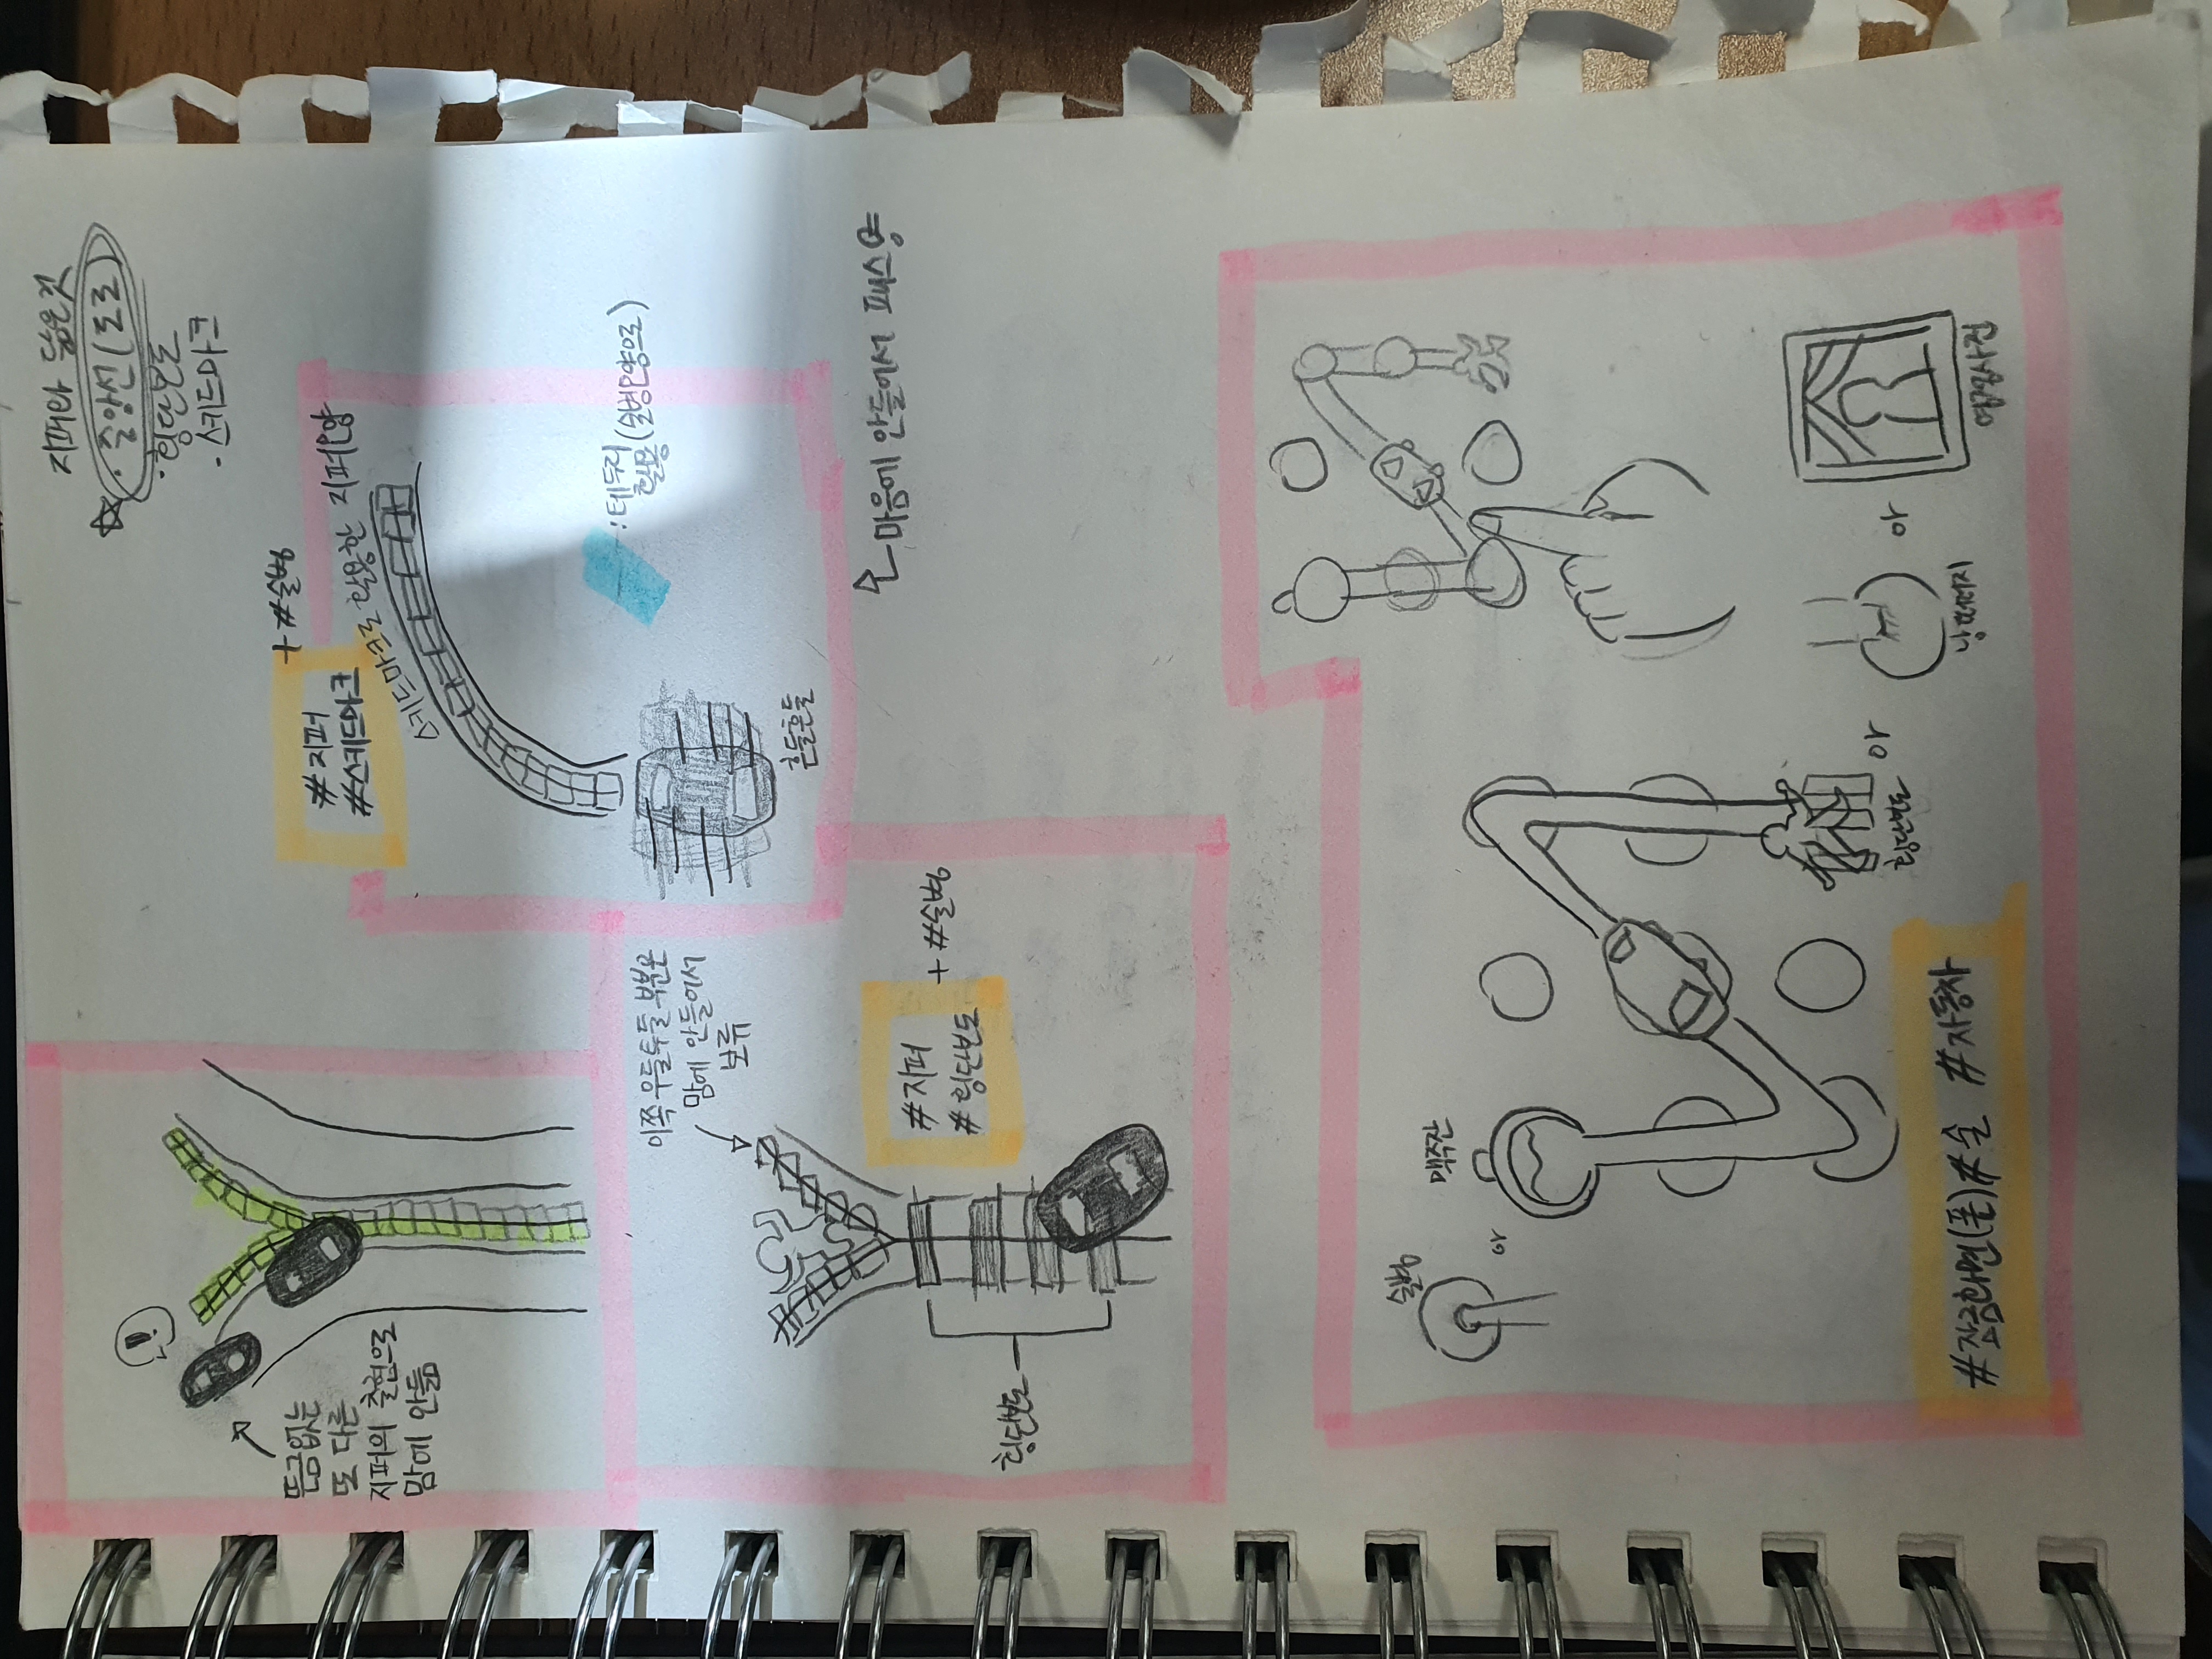 지퍼와 닮은것
· 중앙선(도로)
· 횡단보도
- 스키드마크
!
뜬금없는
또 다른
지퍼의 출현으로
맘에 안듦
#지퍼
#스키드마크
+ #술병
스키드마크로 활용한 지퍼모양
: 테두리
활용(술병모양으로)
흔들흔들
마음에 안들어서 패스양
이쪽 우둘투둘 부분은
맘에 안들어서
보류
#지퍼
#횡단보도
+ #술병
횡단보도
술병
or
맥주잔
횡단보도
or
낭떠러지
or
영정사진
#잠금화면(폰) #술 #자동차